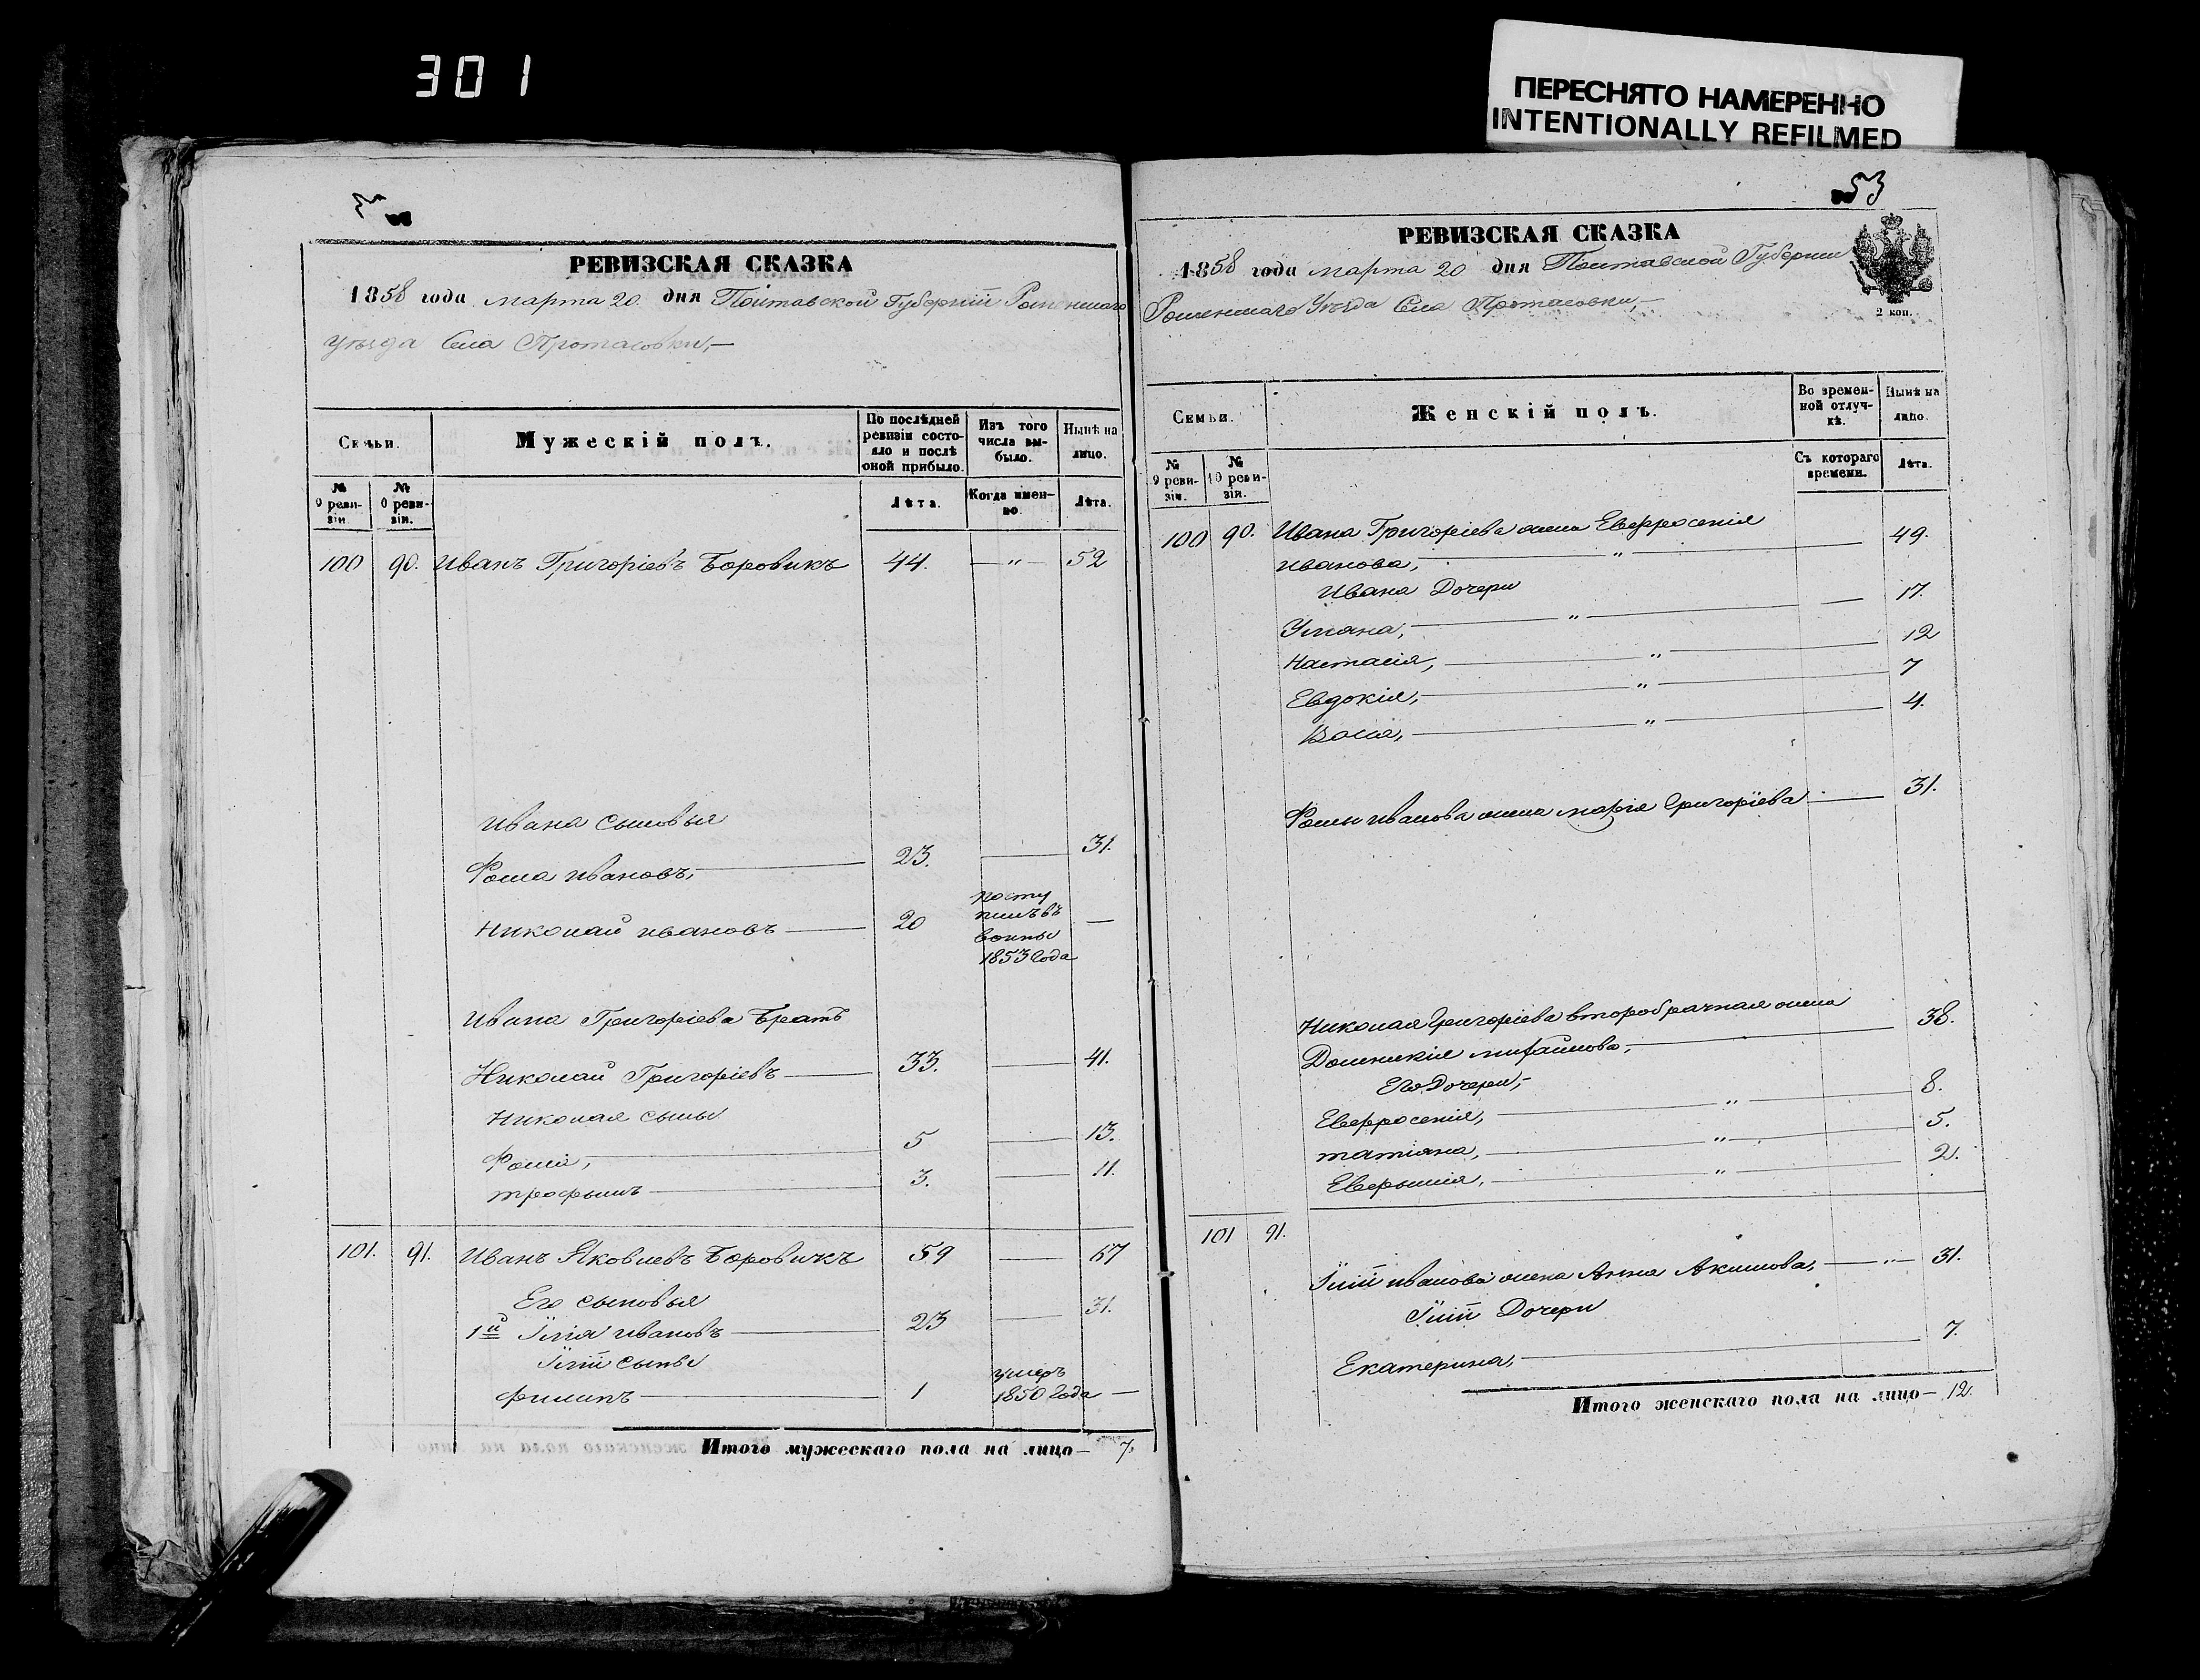 301
ПЕРЕСНЯТО НАМЕРЕННО
INTENTIONALLY REFILMED
РЕВИЗСКАЯ СКАЗКА
1858 года марта 20 дня Полтавской Губернiи Роменскаго
уѣзда Села Протасовки,—
Семьи.
Мужескій полъ.
По послѣдней ревизіи состояло и послѣ оной прибыло.
Изъ того числа выбыло.
Нынѣ на лицо.
№ 9 ревизіи.
№ 0 ревизіи.
Лѣта.
Когда именно
Лѣта.
100 90. Иванъ Григоріевъ Боровикъ 44. — " — 52
Ивана сыновья
Фома Ивановъ, 23. — 31.
Николай Ивановъ — 20 посту
пилъ въ —
воины
1853 Года
Ивана Григоріева Братъ
Николай Григоріевъ — 33. — 41.
Николая сыны
Фома, 5 — 13.
Трофымъ — 3. — 11.
101. 91. Иванъ Яковлевъ Боровикъ 59 — 67
Его сыновья
1й Илія Ивановъ — 23 — 31.
Иліи сынъ
Филипъ — 1 умеръ
1850 Года —
Итого мужескаго пола на лицо — 7.
53
РЕВИЗСКАЯ СКАЗКА
1858 года марта 20 дня Полтавской Губернии
Роменскаго Уѣзда Села Протасовки,—
2 коп.
Семьи.
Женскій полъ.
Во временной отлучкѣ.
Нынѣ на лицо.
№ 9 ревизіи.
№ 10 ревизіи.
Съ котораго времени.
Лѣта.
100 90. Ивана Григоріева жена Евфросенія
Иванова, — " — 49.
Ивана Дочери
Уліана, — " — 17.
Настасія, — " — 12
Евдокія, — " — 7
— " — 4.
Фомы Иванова жена Марія Григоріева — 31.
Николая Григоріева второбрачная жена
Домникія Михайлова, — 38.
Его Дочери,—
Евфросенія, — " — 8.
Татіана, — " — 5.
Евфымія, — " — 2.
101 91.
Иліи Иванова жена Анна Акимова, — " — 31.
Иліи Дочери
Екатерина, — 7.
Итого женскаго пола на лицо — 12.